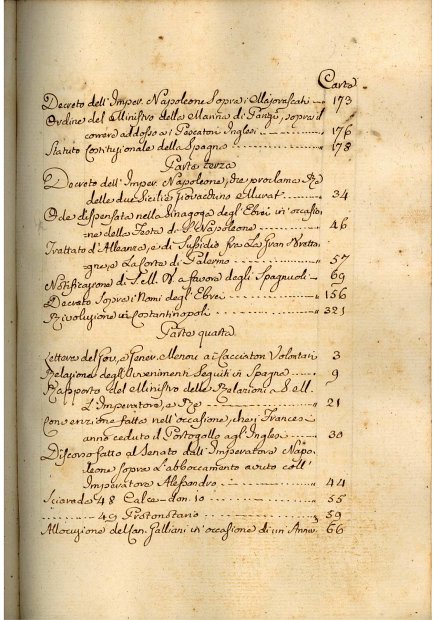 Carta
Decreto dell'Imper. Napoleone Sopra i Majorascati 173
Ordine del Ministro della Marina di
correre addosso ai Pescatori Inglesi 176
Statuto Costituzionale della Spagna 178
Parte terza
Decreto dell'Imper. Napoleone, che proclama Re
delle due Sicilie Giovacchino Murat 34
Ode dispensata nella Sinagoga degl'Ebrei in occasio
ne della Festa di S. Napoleone 46
Trattato d'Alleanza, e di Sussidio fra la Gran Bretta
gna, e la Corte di Palermo 57
Notificazione di S. M. B. a favore degli Spagnuoli 69
Decreto Sopra i Nomi degl'Ebrei 156
Rivoluzione in Costantinopoli 321
Parte quarta
Lettere del Gov. e Gener. Menou ai Cacciatori Volontari 3
Relazione degli Avvenimenti Seguiti in Spagna 9
Rapporto del Ministro delle Relazioni a S. M.
L'Imperatore, e Re 21
Convenzione fatta nell'occasione, che i Francesi
anno ceduto il Portogollo agl'Inglesi 30
Discorso fatto al Senato dall'Imperatore Napo
leone sopra l'abboccamento avuto coll'
Imperatore Alessandro 44
Sciarada 48 Calce-don-io 55
49 Protonotario 59
Allocuzione del Can. Galliani in occasione di un Anniv. 66